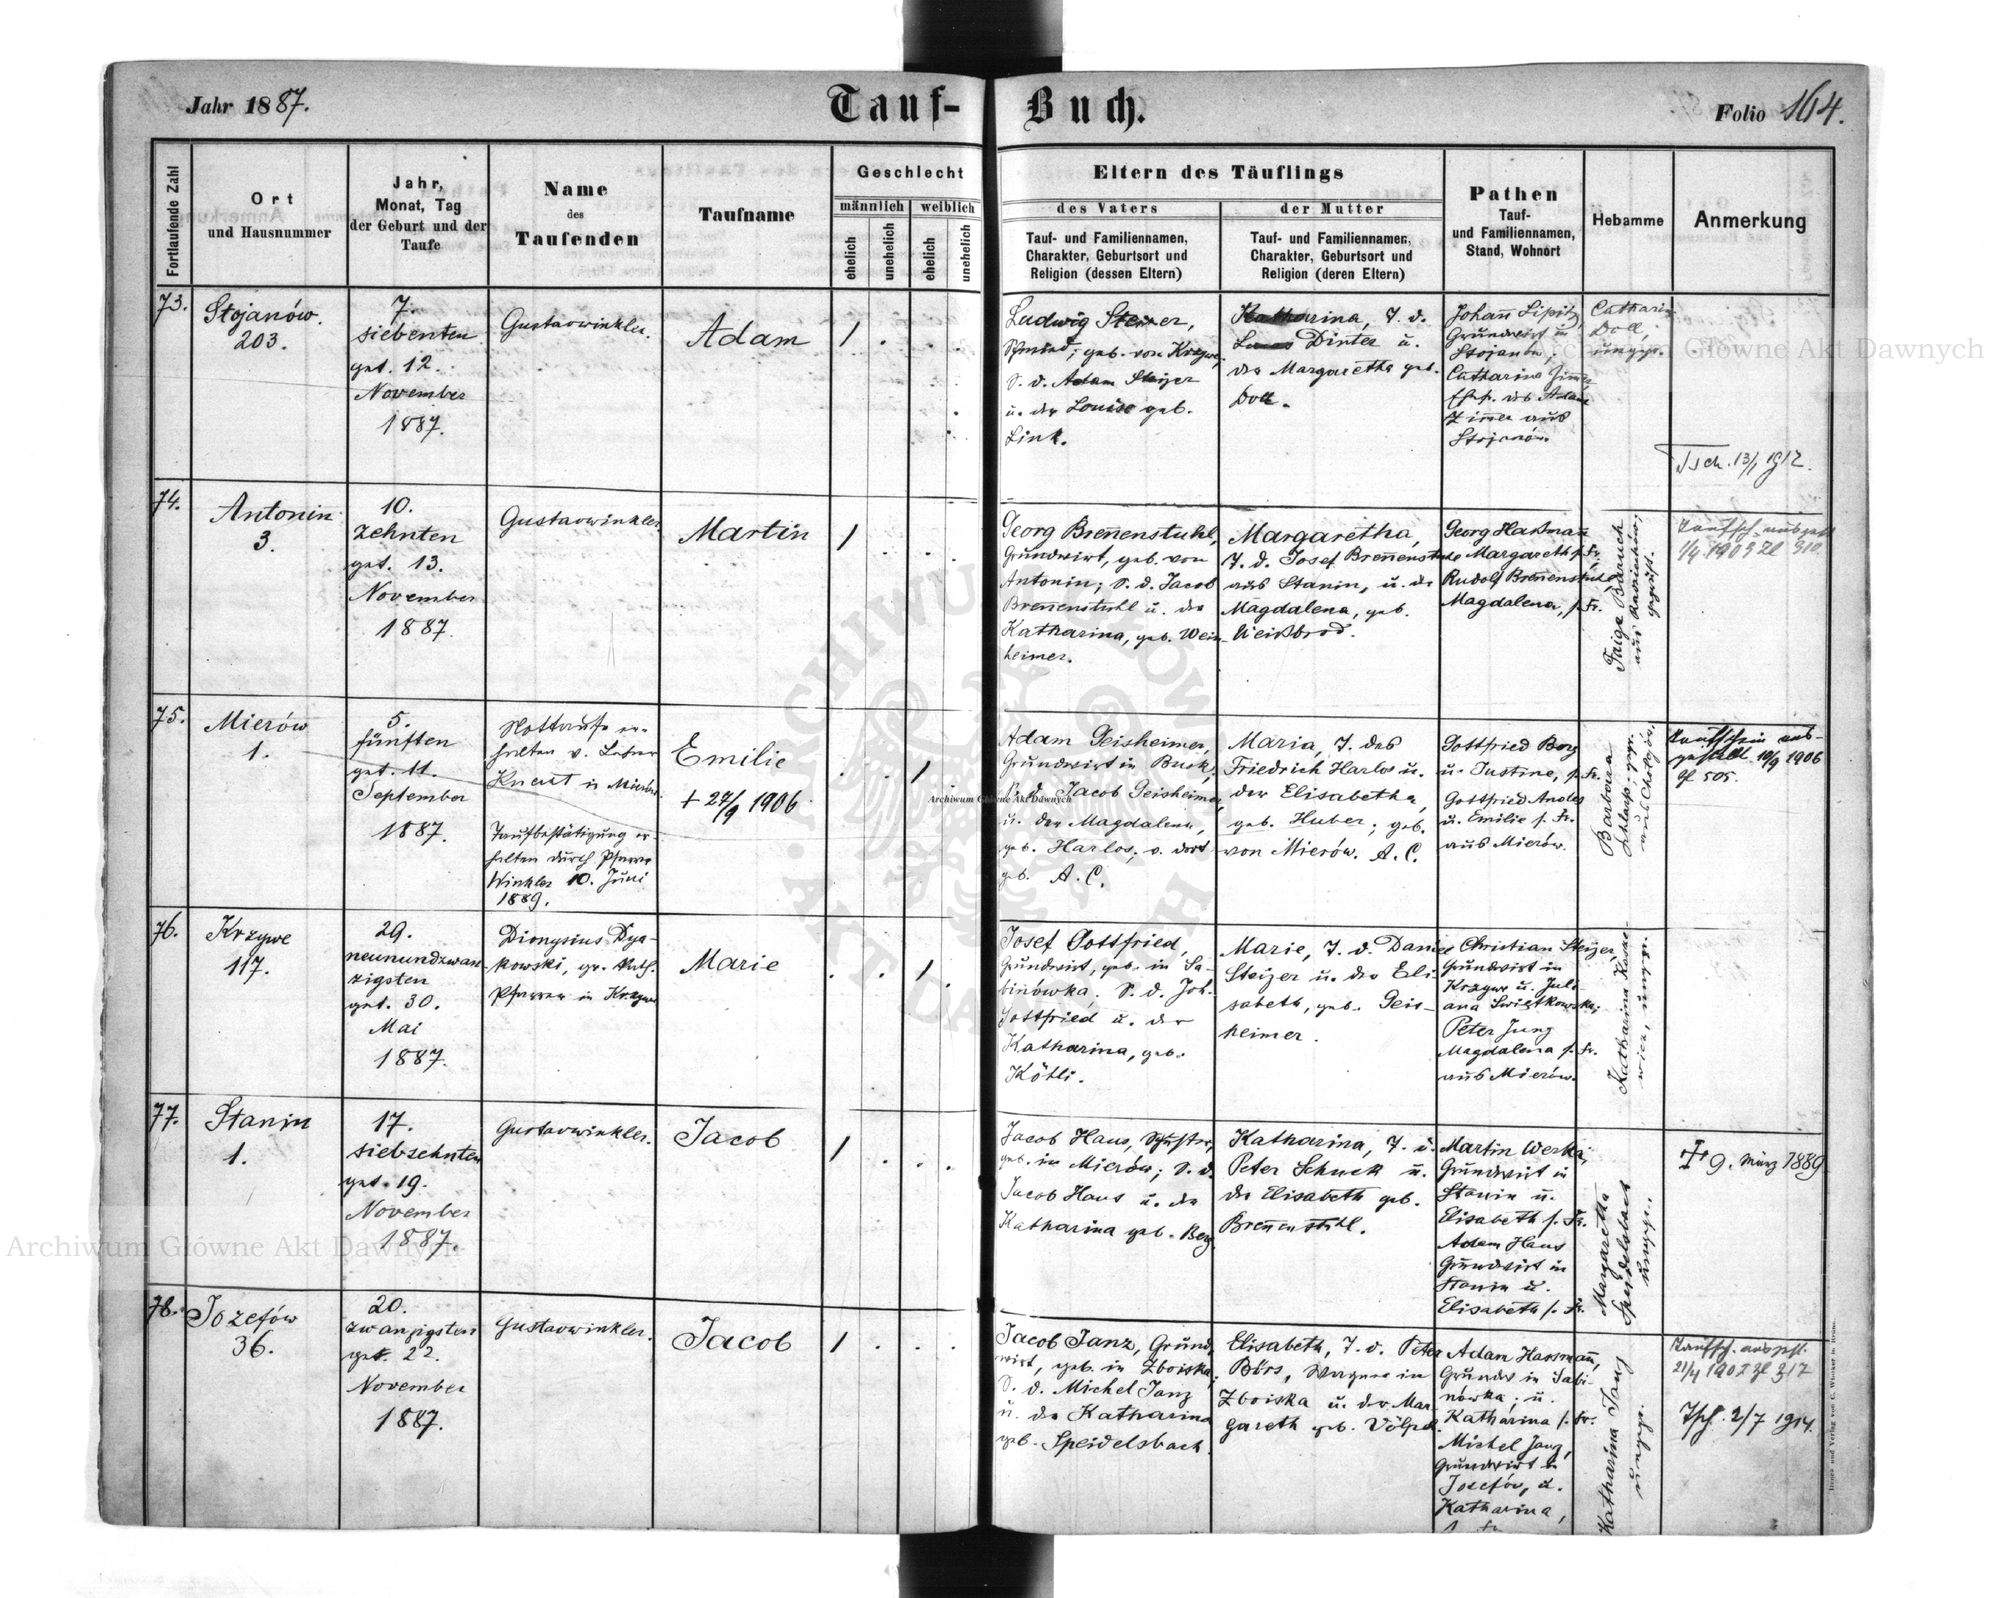 Jahr 1887.
Tauf-
Buch.
Folio 164.
Fortlaufende Zahl
Ort
und Hausnummer
Jahr,
Monat, Tag
der Geburt und der
Taufe
Name
des
Taufenden
Taufname
Geschlecht
männlich
weiblich
ehelich
unehelich
ehelich
unehelich
Eltern des Täuflings
des Vaters
der Mutter
Tauf- und Familiennamen,
Charakter, Geburtsort und
Religion (dessen Eltern)
Tauf- und Familiennamen,
Charakter, Geburtsort und
Religion (deren Eltern)
Pathen
Tauf-
und Familiennamen,
Stand, Wohnort
Hebamme
Anmerkung
73.
Stojanów.
203.
7.
siebenten
get. 12.
November
1887.
Gustavwinkler.
Adam
1
Ludwig Steizer,
Schmied, geb. von Krzywe,
S. d. Adam Steizer
u. der Louise geb.
Link.
Katharina, T. d.
Dinter u.
der Margaretha geb.
Doll.
Johann Lipitz
Grundwirt in
Stojanów,
Catharina Zimmer
Ehefr. des Adam
Zimmer aus
Stojanów.
Catharina
Doll,
ungepr.
Tsch. 13/1 1912.
74.
Antonin
3.
10.
zehnten
get. 13.
November
1887.
Gustavwinkler
Martin
1
Georg Brennenstuhl,
Grundwirt, geb. von
Antonin; S. d. Jacob
Brennenstuhl u. der
Katharina, geb. Wein-
heimer.
Margaretha,
T. d. Josef Brennenstuhl
aus Stanin, u. der
Magdalena, geb.
Weißbrod.
Georg Haßmann
u. Margareth s. Fr.
Rudolf Brennenstuhl
Magdalena, s. Fr.
Faige Baruch
aus Radziechów,
geprüft.
Taufsch. ausgest.
1/4 1909 Zl 910.
75.
Mierów
1.
5.
fünften
get. 11.
September
1887.
Nottaufe er-
halten v. Lehrer
Knecht in Mierów.
Taufbestätigung er-
halten durch Pfarrer
Winkler 10. Juni
1889.
Emilie
+ 27/9 1906.
1
Adam Geisheimer,
Grundwirt in Busk,
S. d. Jacob Geisheimer,
u. der Magdalena,
geb. Harlos, v. dort
geb. A. C.
Maria, T. des
Friedrich Harlos u.
der Elisabetha,
geb. Huber; geb.
von Mierów. A. C.
Gottfried Berg
u. Justine, s. Fr.
Gottfried Andes
u. Emilie s. Fr.
aus Mierów.
Barbara
Schlarp; gepr.
aus Chołojów.
Taufschein aus-
gestellt 19/9 1906
Zl 505.
76.
Krzywe
117.
29.
neunundzwan-
zigsten
get. 30.
Mai
1887.
Dionysius Dya-
kowski, gr. kath.
Pfarrer in Krzywe
Marie
1
Josef Gottfried,
Grundwirt, geb. in Sa-
binówka. S. d. Joh.
Gottfried u. der
Katharina, geb.
Köthi.
Marie, T. d. Daniel
Steizer u. der Eli-
sabeth, geb. Geis-
heimer.
Christian Steizer
Grundwirt in
Krzywe u. Juli-
ana Swiętkowska;
Peter Jung
Magdalena s. Fr.
aus Mierów.
Katharina
ungepr.
77.
Stanin
1.
17.
siebzehnten
get. 19.
November
1887.
Gustavwinkler.
Jacob
1
Jacob Haus, Schuster,
geb. in Mierów; S. d.
Jacob Haus u. der
Katharina geb. Berg.
Katharina, T. d.
Peter Schuck u.
der Elisabeth geb.
Brennenstuhl.
Martin Werka,
Grundwirt in
Stanin u.
Elisabeth s. Fr.
Adam Haus
Grundwirt in
Stanin u.
Elisabeth s. Fr.
Margaretha
Speidelsbach
ungepr.
† 9. März 1889
78.
Józefów
36.
20.
zwanzigsten
get. 22.
November
1887.
Gustavwinkler.
Jacob
1
Jacob Janz, Grund-
wirt, geb. in Zboiska;
S. d. Michel Janz
u. der Katharina
geb. Speidelsbach.
Elisabeth, T. d. Peter
Börs, Wagner in
Zboiska u. der Mar-
gareth geb. Völpel.
Adam Hassmann,
Grundw. in Sabi-
nówka, u.
Katharina s. Fr.
Michel Janz,
Grundwirt in
Josefów, u.
Katharina,
s. Fr.
Katharina Janz
ungepr.
Taufsch. ausgest.
21/4 1907 Zl 317
Tsch. 2/7 1914.
Archiwum Główne Akt Dawnych
Archiwum Główne Akt Dawnych
Archiwum Główne Akt Dawnych